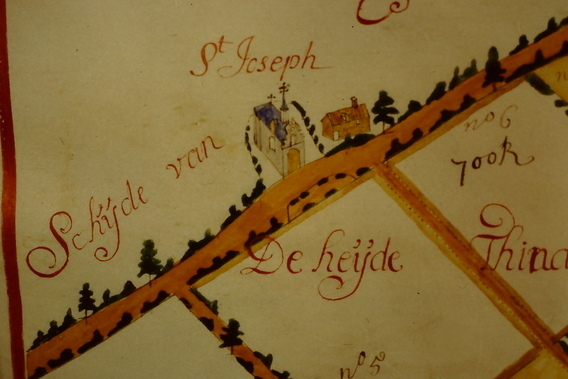 St Joseph
Schÿde van
no 6
700R
De heÿde
no 5